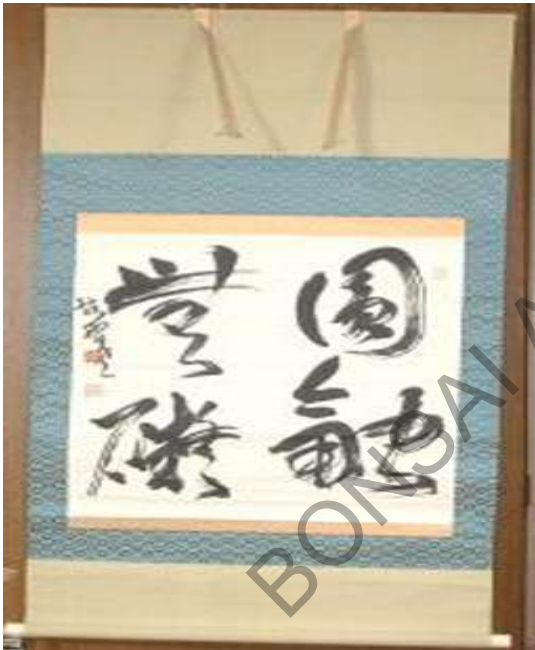 圓融
無礙
BONSAI A